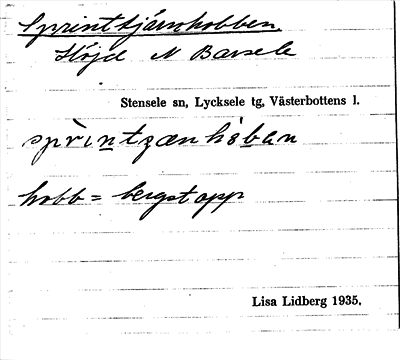 Sprintkjärnhobben.
Höjd N Barsele
Stensele sn, Lycksele tg, Västerbottens l.
hobb = bergstopp
Lisa Lidberg 1935.